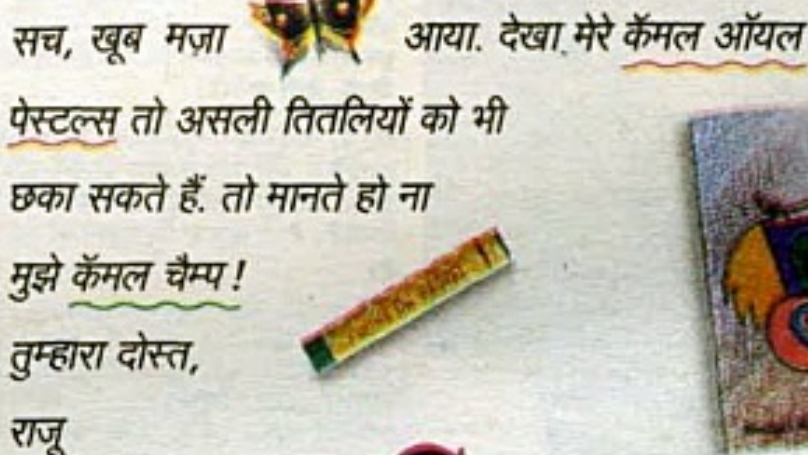 सच, खूब मज़ा आया. देखा मेरे कॅमल ऑयल
पेस्टल्स तो असली तितलियों को भी
छका सकते हैं. तो मानते हो ना
मुझे कॅमल चैम्प !
तुम्हारा दोस्त,
राजू